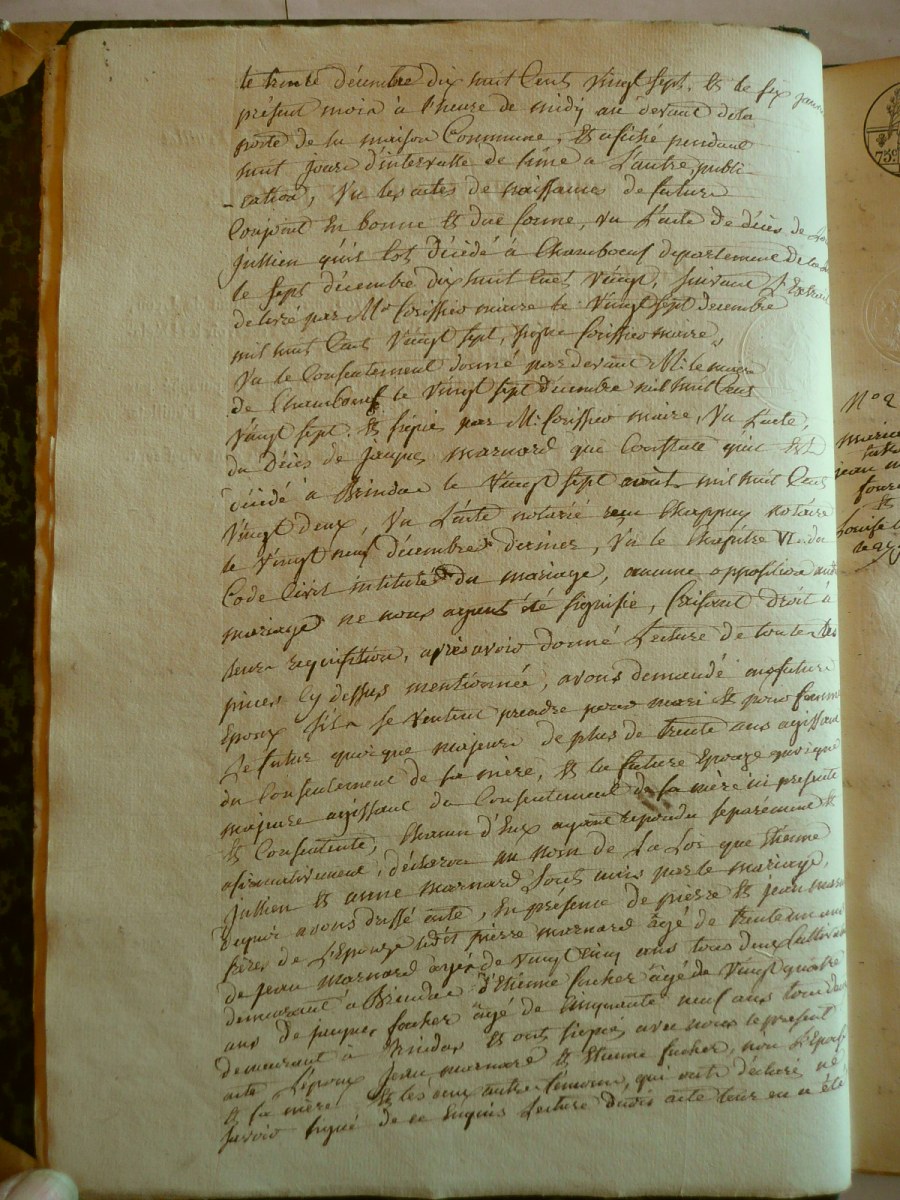 le trente décembre dix huit Cent Vingt Sept, Et le six janv
présent mois à l'heure de midy au devant dela
porte de la maison Commune, Et afiché pendant
huit jours d'intervalle de l'une a L'autre publi-
-cation, Vu les actes de naissances de future
Conjoint En bonne Et due forme, vu L'acte de décès de
Jullien qu'il Est Décédé à Chamboeuf département de la
le Sept décembre dix huit Cent Vingt, Suivant L'Extrait
delivré par Mr maire le Vingt Sept decembre
mil huit Cent Vingt Sept, signé maire,
Vu le Consentement donné pardevant Mr le maire
de Chamboeuf le Vingt Sept décembre mil huit Cent
Vingt Sept. Et signé par Mr maire, Vu L'acte,
du Décès de Jaques marnard que Constate qu'il Est
décédé à Brindas le Vingt Sept août mil huit Cent
Vingt deux, Vu L'acte notarié Chappuy notaire
le Vingt neuf décembre dernier, Vu le Chapitre VI du
Code Civil institulé Du mariage, aucune opposition audit
mariage ne nous ayant été signifié, faisant droit à
leur requisition, après avoir donné Lecture de toutes les
pieces Cy dessus mentionnée, avons demandé au futur
Epoux s'ils se veulent prendre pour mari Et pour femme
Le futur quoique majeur de plus de trente ans agissant
du Consentement de sa mère, Et la future Epouze quoique
majeure agissant du Consentement de sa mère ici presente
Et Consentente, Chacun d'Eux ayant repondu separément Et
afirmativement, déclarons au nom de La Loi que Etienne
Jullien Et anne marnard Sont unis par le mariage,
Dequoi avons dressé acte, En présence de pierre Et jean marnard
frères de L'Epouze ledit pierre marnard âgé de trente un ans
de jean marnard âgé de vingt Cinq ans tous deux Cultivateurs
demeurant a Brindas d'Etienne fucher âgé de Vingt quatre
ans de jaques foucher âgé de Cinquante neuf ans tous deux
demeurant à Brindas Et ont signés avec nous le présent
acte L'époux Jean marnard Et Etienne fucher, non L'Epouse
Et sa mère Et les deux autre témoins, qui ont déclaré ne
Savoir signé de ce Enquis Lecture Dudit acte leur en a été
N° 2
jean
Louise